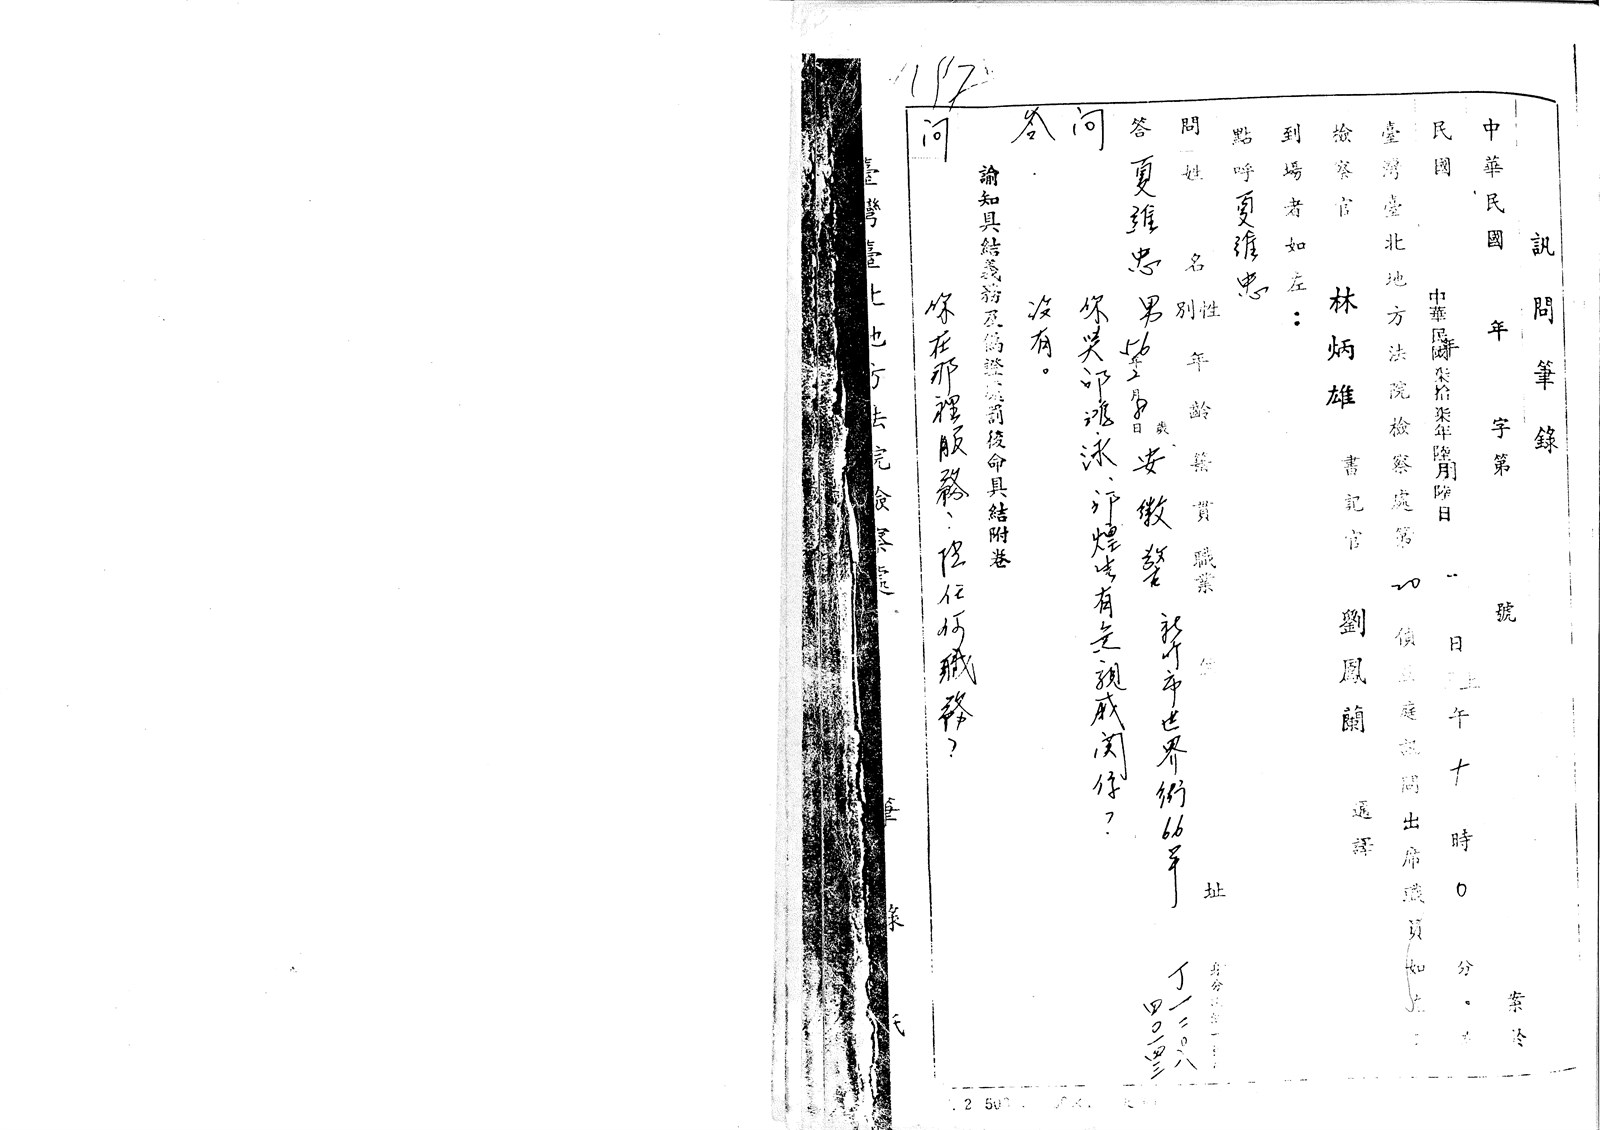 訊問筆錄
中華民國 年 字第 號 案於
民國 年 月 日 上午十時0分
中華民國柒拾柒年陸月陸日
臺灣臺北地方法院檢察處第20偵查庭訊問出席職員如左
檢察官 林炳雄 書記官 劉鳳蘭 通譯
到場者如左：
點呼夏維忠
問 姓名 性別 年齡 籍貫 職業 住址
答 夏維忠 男 56年2月 日 歲 安徽 警 新竹市世界街66号
丁一二〇八四〇一四三
問 你與邱 泳、邱煌生有無親戚關係?
答 沒有。
諭知具結義務及偽證處罰後命具結附卷
問 你在那裡服務、 任何職務?
臺灣臺北地方法院檢察處 筆錄紙